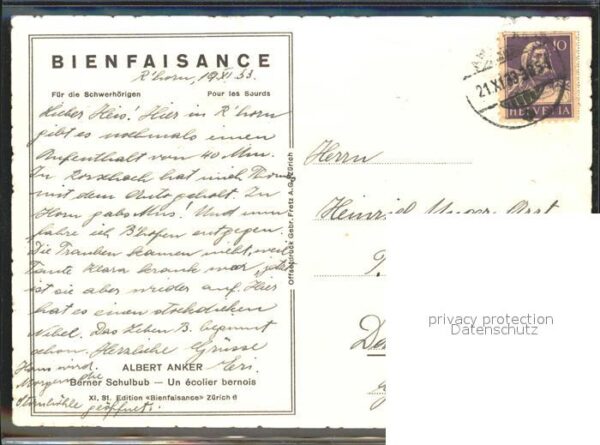 BIENFAISANCE
R'horn, 19 XI 33.
Für die Schwerhörigen Pour les Sourds
Lieber Heio! Hier in R'horn
gibt es nochmals einen
Aufenthalt von 40 Min.
In Rorschach hat mich
mit dem Auto geholt. In
Horn gabs Mus! Und nun
fahre ich B'hofen entgegen.
Die Trauben kamen nicht, weil
Tante Klara krank war, jetzt
ist sie aber wieder auf. Hier
hat es einen
Nebel. Das Leben B. beginnt
schon. Herzliche Grüsse
Hans wird ALBERT ANKER Eri.
Morgen die Berner Schulbub — Un écolier bernois
geöffnet.
XI. S1. Edition «Bienfaisance» Zürich 6
Offsetdruck Gebr. Fretz A.G. Zürich
Herrn
Heinrich Arzt
HELVETIA
10
21.XI
privacy protection
Datenschutz